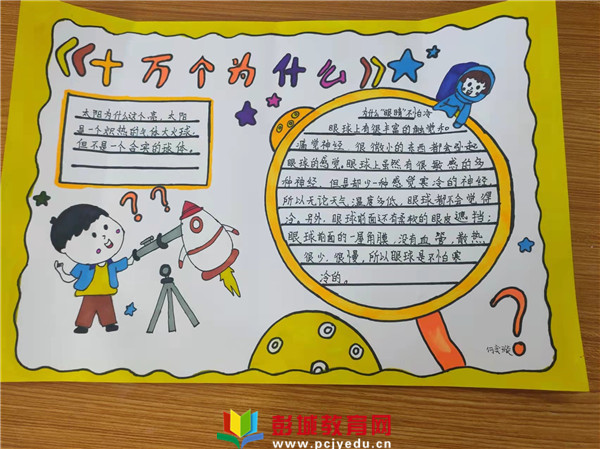 《十万个为什么》
太阳为什么这个亮，太阳
是一个炽热的气体大火球，
但不是一个合实的球体。
为什么"眼睛"不怕冷
眼球上有很丰富的触觉和
痛觉神经，很微小的东西都会引起
眼球的感觉，眼球上虽然有很敏感的多
种神经，但是却少一种感觉寒冷的神经
所以无论天气温度多低，眼球都不会觉得
冷，另外，眼球前面还有柔软的眼皮遮挡；
眼球前面的一层角膜，没有血管，散热
很少，很慢，所以眼球是不怕寒
冷的。
? ?
?
彭城教育网
www.pcjyedu.cn